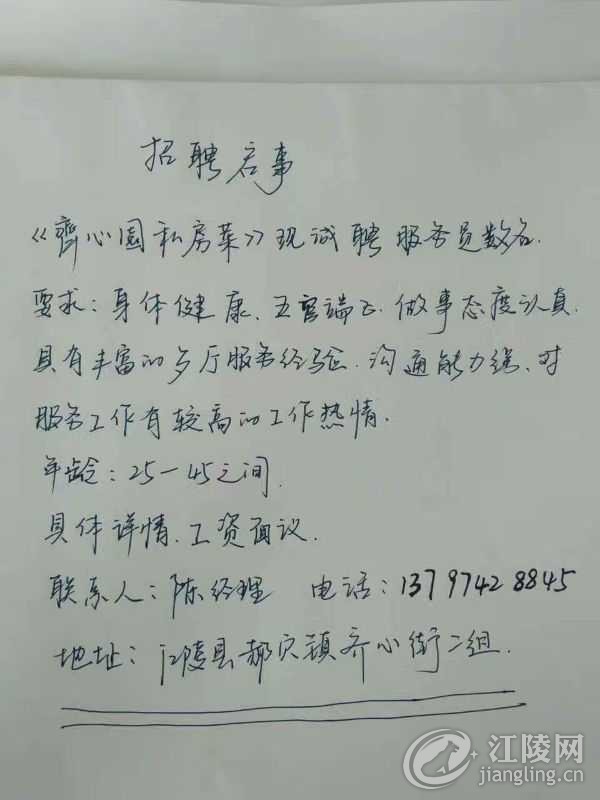 招聘启事
《齊心園私房菜》现诚聘服务员数名.
要求：身体健康、五官端正.做事态度认真.
具有丰富的歺厅服务经验.沟通能力强、对
服务工作有较高的工作热情.
年龄：25—45之间.
具体详情.工资面议.
联系人：陈经理 电话：13797428845
地址：江陵县郝穴镇齐心街二组.
江陵网
jiangling.cn